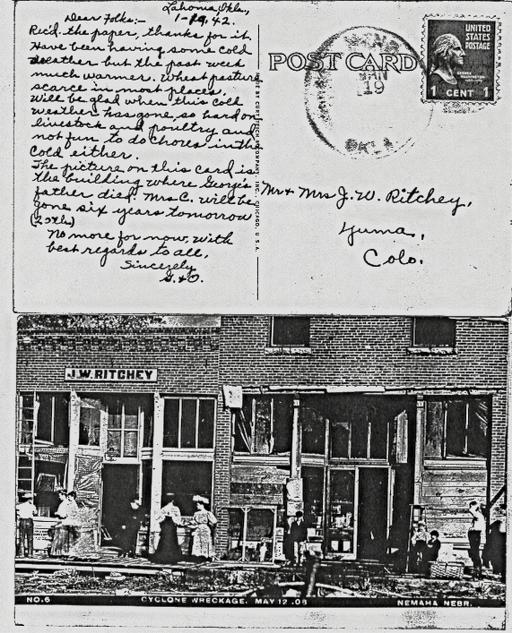 Lahoma, Okla.,
1-19, 42.
Dear Folks:-
Rec'd. the paper, thanks for it.
Have been having some cold
weather but the past week
much warmer. Wheat pasture
scarce in most places.
Will be glad when this cold
weather has gone, so hard on
livestock and poultry and
not fun to do chores in the
cold either.
The picture on this card is
the building where George's
father died. Mrs C. will be
gone six years tomorrow
No more for now, with
best regards to all,
Sincerely
G. & O.
POST CARD
JAN
19
OKLA.
UNITED
STATES
POSTAGE
1 CENT 1
Mr & Mrs J. W. Ritchey,
Yuma,
Colo.
J.W. RITCHEY
NO.6 CYCLONE WRECKAGE. MAY 12.08 NEMAHA NEBR.